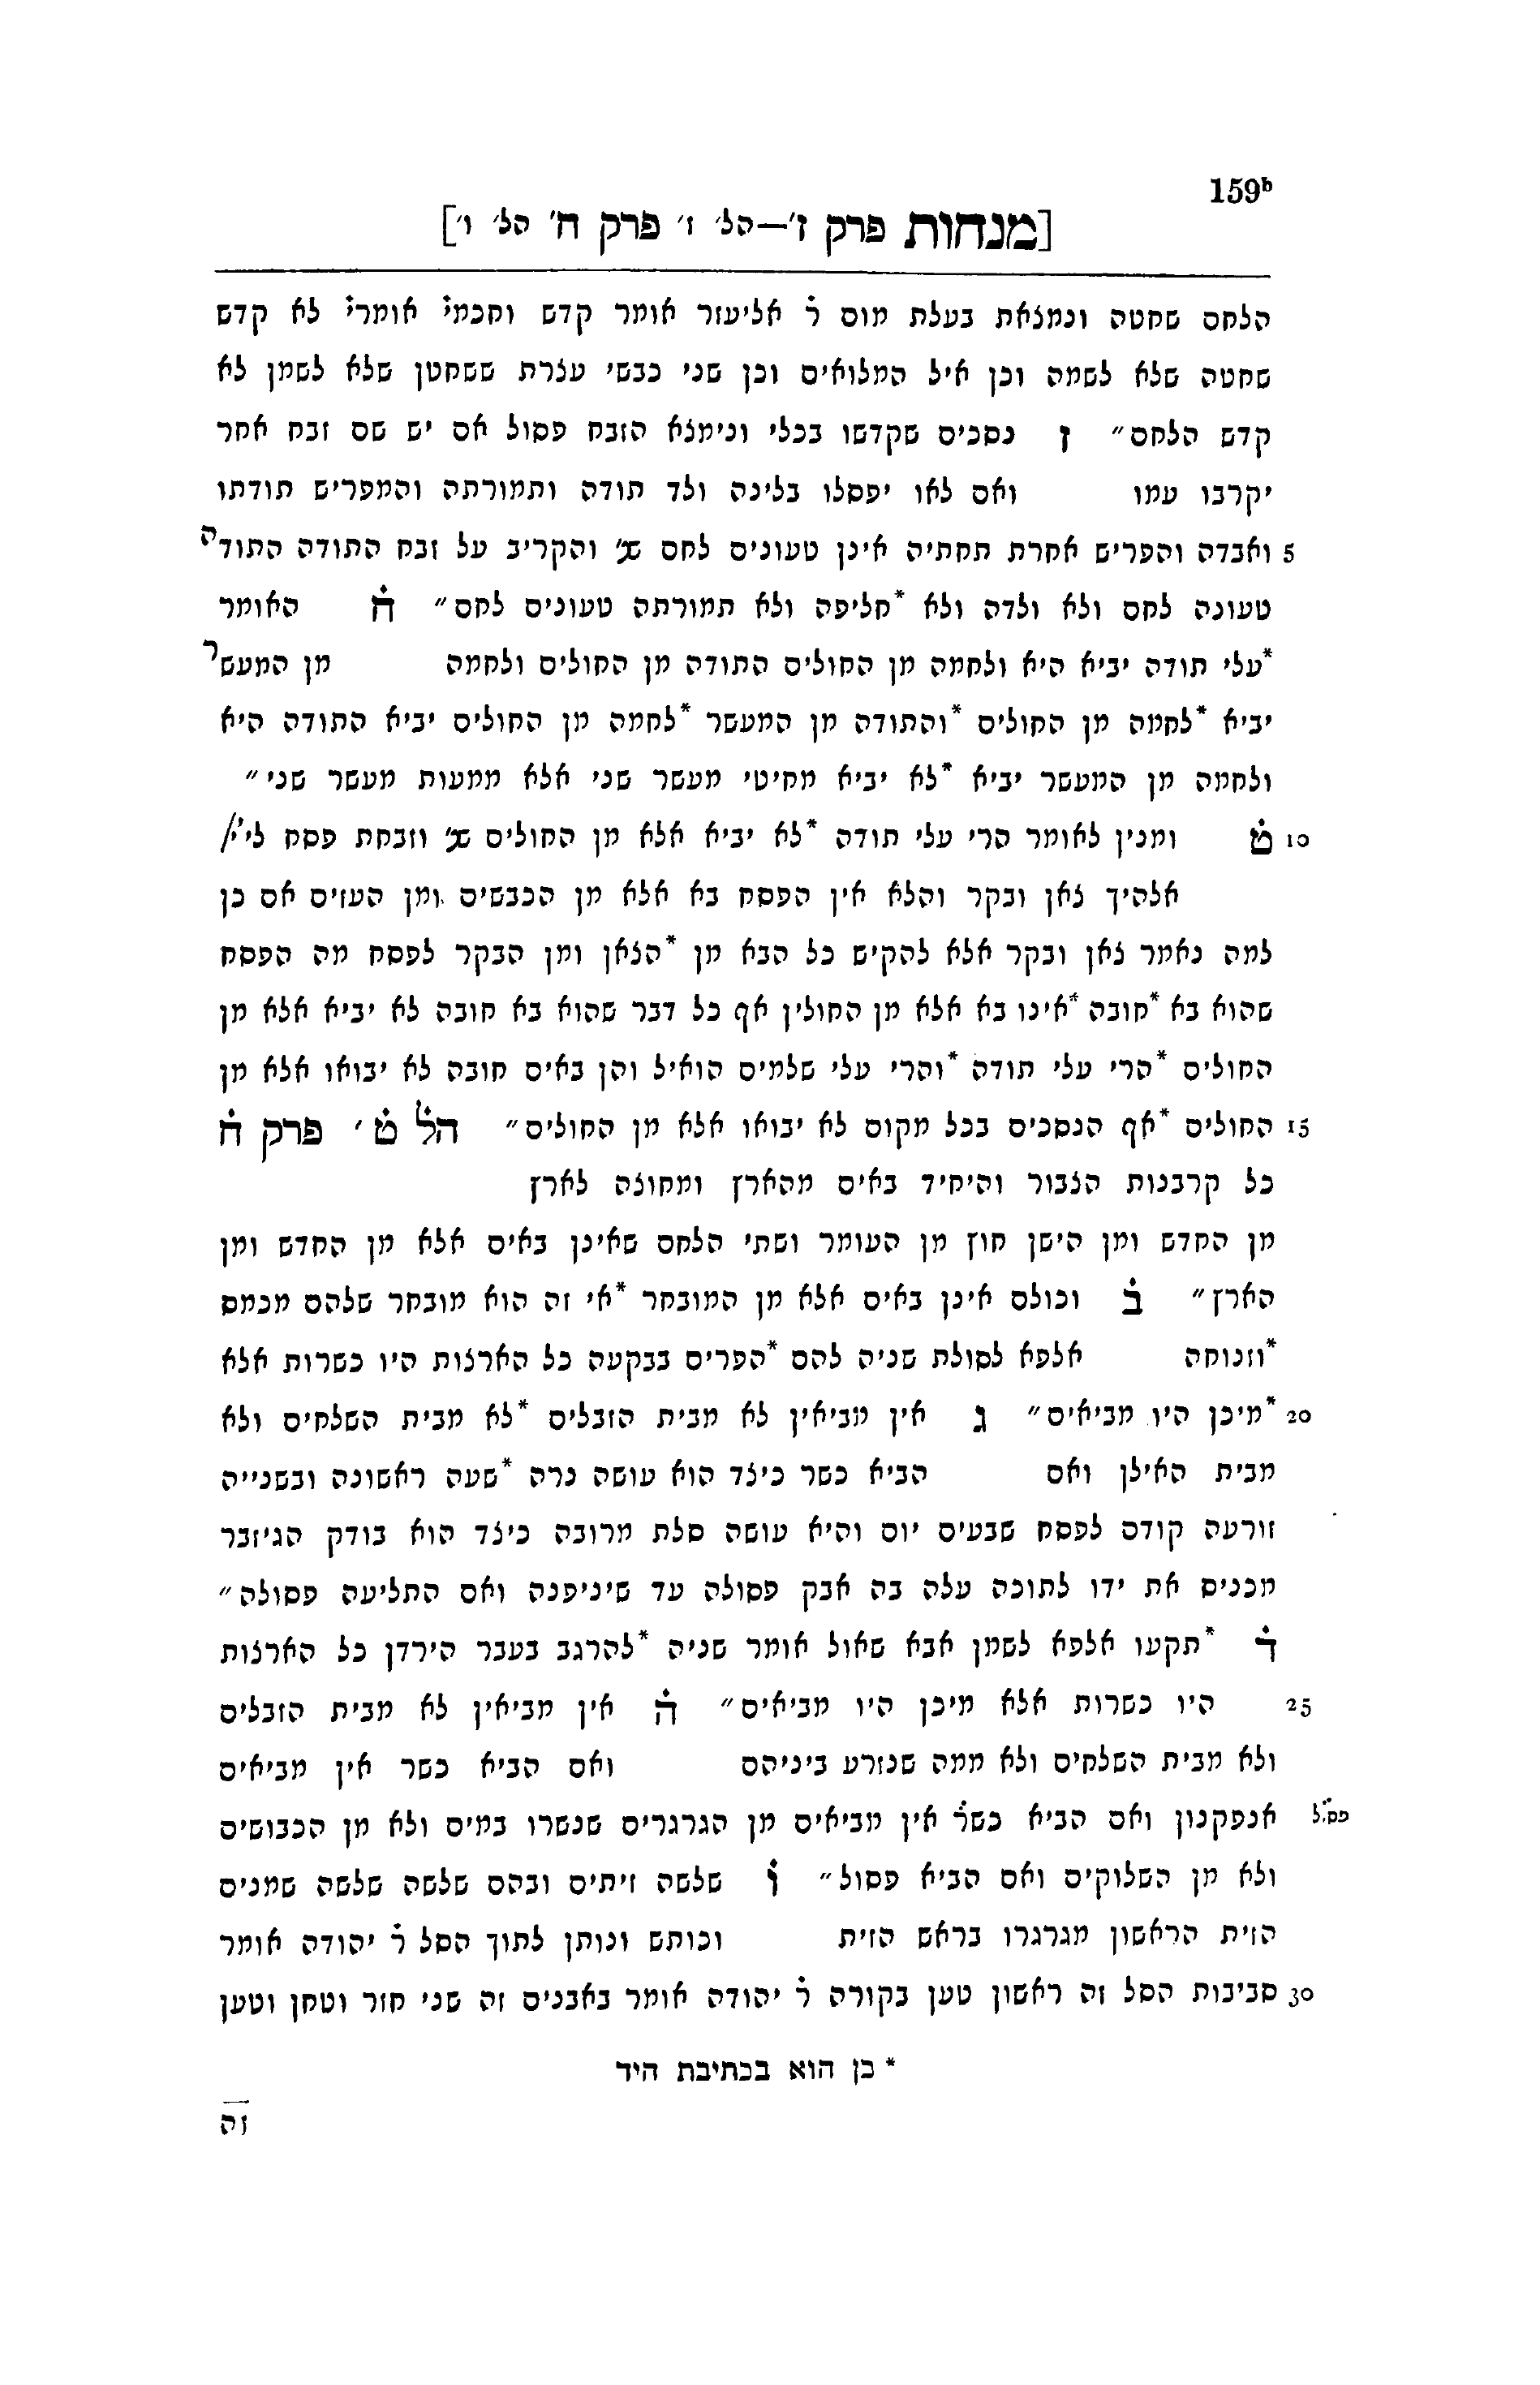 159ᵇ
[מנחות פרק ז'—הל' ז' פרק ח' הל' ו']
הלחם שחטה ונמצאת בעלת מום ר̇ אליעזר אומר קדש וחכמי̇ אומרי̇ לא קדש
שחטה שלא לשמה וכן איל המלואים וכן שני כבשי עצרת ששחטן שלא לשמן לא
קדש הלחם" ז נסכים שקדשו בכלי ונימצא הזבח פסול אם יש שם זבח אחר
יקרבו עמו ואם לאו יפסלו בלינה ולד תודה ותמורתה והמפריש תודתו
5 ואבדה והפריש אחרת תחתיה אינן טעונים לחם שנ' והקריב על זבח התודה התודה
טעונה לחם ולא ולדה ולא *חליפה ולא תמורתה טעונים לחם" ḣ האומר
*עלי תודה יביא היא ולחמה מן החולים התודה מן החולים ולחמה מן המעשר
יביא *לחמה מן החולים *והתודה מן המעשר *לחמה מן החולים יביא התודה היא
ולחמה מן המעשר יביא *לא יביא מחיטי מעשר שני אלא ממעות מעשר שני"
10 ט̇ ומנין לאומר הרי עלי תודה *לא יביא אלא מן החולים שנ' וזבחת פסח ליי'
אלהיך צאן ובקר והלא אין הפסח בא אלא מן הכבשים ומן העזים אם כן
למה נאמר צאן ובקר אלא להקיש כל הבא מן *הצאן ומן הבקר לפסח מה הפסח
שהוא בא *חובה *אינו בא אלא מן החולין אף כל דבר שהוא בא חובה לא יביא אלא מן
החולים *הרי עלי תודה *והרי עלי שלמים הואיל והן באים חובה לא יבואו אלא מן
15 החולים *אף הנסכים בכל מקום לא יבואו אלא מן החולים" הל̇ ט̇ ' פרק ח̇
כל קרבנות הצבור והיחיד באים מהארץ ומחוצה לארץ
מן החדש ומן הישן חוץ מן העומר ושתי הלחם שאינן באים אלא מן החדש ומן
הארץ" ב̇ וכולם אינן באים אלא מן המובחר *אי זה הוא מובחר שלהם מכמס
*וזנוחה אלפא לסולת שניה להם *הפרים בבקעה כל הארצות היו כשרות אלא
20 *מיכן היו מביאים" ג̇ אין מביאין לא מבית הזבלים *לא מבית השלחים ולא
מבית האילן ואם הביא כשר כיצד הוא עושה נרה *שעה ראשונה ובשנייה
זורעה קודם לפסח שבעים יום והיא עושה סלת מרובה כיצד הוא בודק הגיזבר
מכניס את ידו לתוכה עלה בה אבק פסולה עד שיניפנה ואם התליעה פסולה"
ד̇ *תקעו אלפא לשמן אבא שאול אומר שניה *להרגב בעבר הירדן כל הארצות
25 היו כשרות אלא מיכן היו מביאים" ה̇ אין מביאין לא מבית הזבלים
ולא מבית השלחים ולא ממה שנזרע ביניהם ואם הביא כשר אין מביאים
פסו̇ל אנפקנון ואם הביא כשר̇ אין מביאים מן הגרגרים שנשרו במים ולא מן הכבושים
ולא מן השלוקים ואם הביא פסול" ו̇ שלשה זיתים ובהם שלשה שלשה שמנים
הזית הראשון מגרגרו בראש הזית וכותש ונותן לתוך הסל ר̇ יהודה אומר
30 סביבות הסל זה ראשון טען בקורה ר̇ יהודה אומר באבנים זה שני חזר וטחן וטען
* כן הוא בכתיבת היד
זה